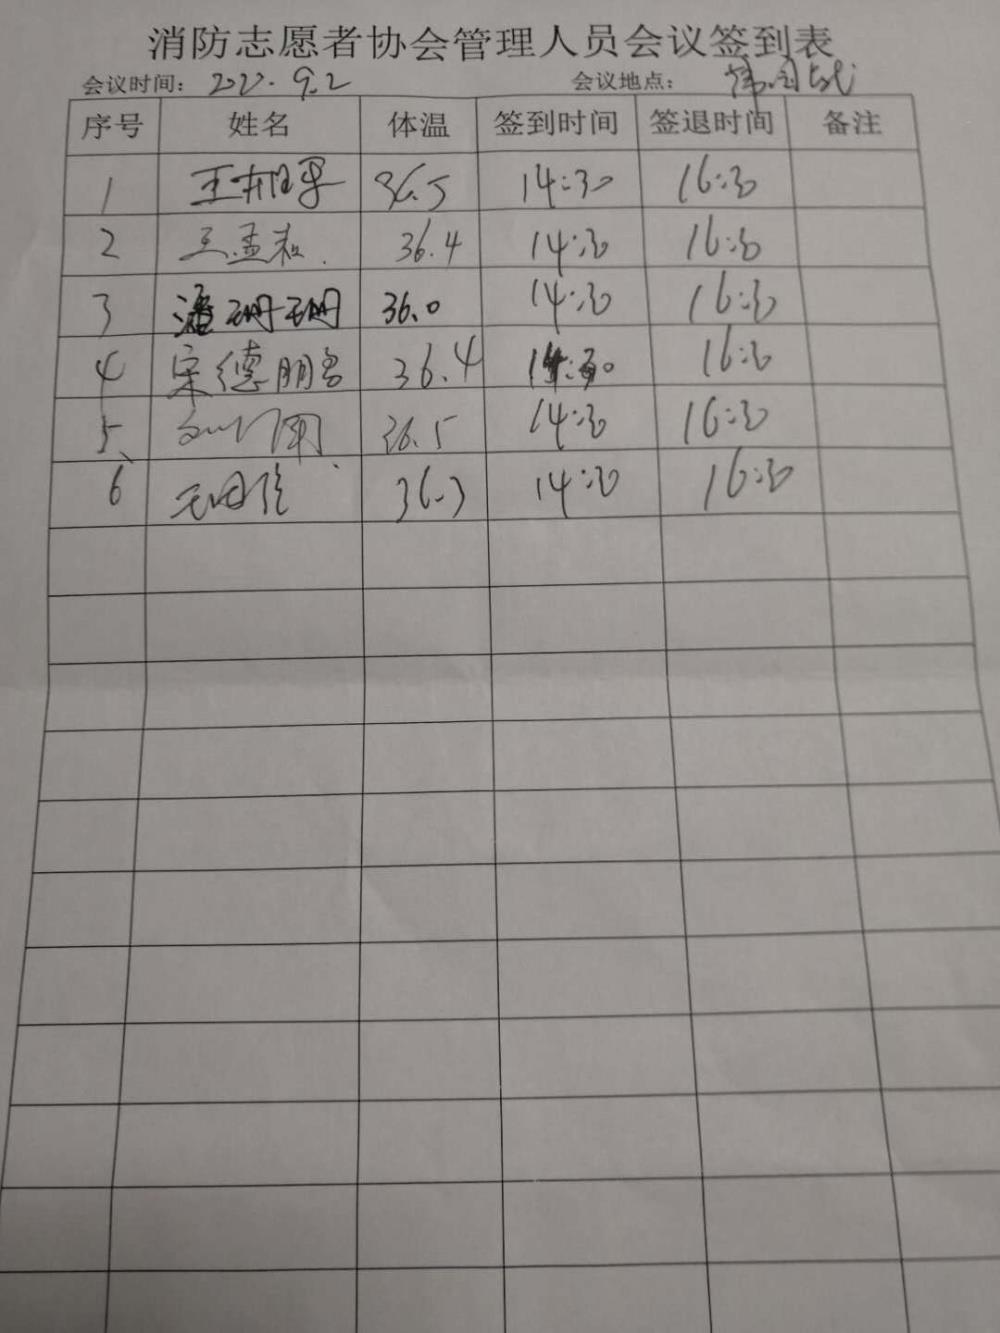 消防志愿者协会管理人员会议签到表
会议时间: 2022.9.2 会议地点:
序号 姓名 体温 签到时间 签退时间 备注
1 36.5 14:30 16:30
2 王孟 36.4 14:30 16:30
3 潘珊珊 36.0 14:30 16:30
4 宋德朋 36.4 14:30 16:30
5、 36.5 14:30 16:30
6 36.3 14:30 16:30